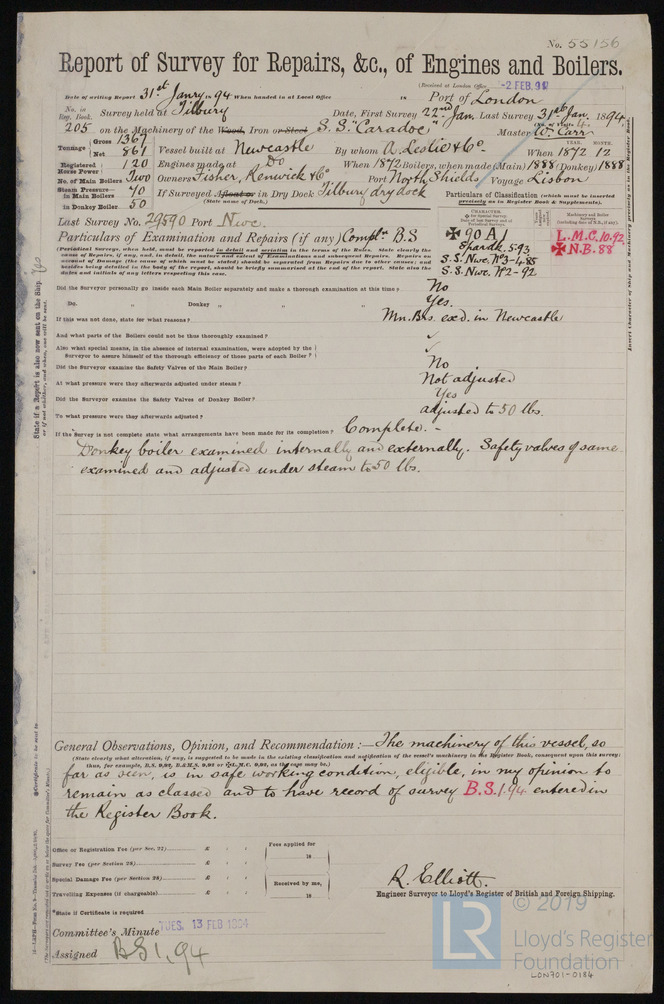 No. 55156
Report of Survey for Repairs, &c., of Engines and Boilers.
(Received at London Office -2 FEB. 94
Date of writing Report 31st Janry 1894 When handed in at Local Office 18 Port of London
No. in Reg. Book. Survey held at Tilbury Date, First Survey 22nd Jan. Last Survey 31st Jan. 1894
205 on the Machinery of the Wood, Iron or Steel S.S. "Caradoc" Master W. Carr
Tonnage Gross 1367 Net 861 Vessel built at Newcastle By whom A. Leslie & Co. When 1872 12
YEAR. MONTH.
Registered Horse Power 120 Engines made at Do When 1872 Boilers, when made (Main) 1888 (Donkey) 1888
No. of Main Boilers Two Owners Fisher, Renwick & Co Port North Shields Voyage Lisbon
Steam Pressure in Main Boilers 70 If Surveyed Afloat or in Dry Dock Tilbury dry dock
in Donkey Boiler 50 (State name of Dock.)
Particulars of Classification (which must be inserted precisely as in Register Book & Supplements).
Last Survey No. 29590 Port Nwc.
✠ 90 A 1
S.S. Nwc. No3-4.85
S.S. Nwc. No2-92
L.M.C. 10.92
✠ N.B. 88
Particulars of Examination and Repairs (if any) Compln B.S
(Periodical Surveys, when held, must be reported in detail and seriatim in the terms of the Rules. State clearly the
cause of Repairs, if any, and, in detail, the nature and extent of Examinations and subsequent Repairs. Repairs on
account of Damage (the cause of which must be stated) should be separated from Repairs due to other causes; and
besides being detailed in the body of the report, should be briefly summarised at the end of the report. State also the
dates and initials of any letters respecting this case.
Did the Surveyor personally go inside each Main Boiler separately and make a thorough examination at this time? No
Do. " Donkey " " " Yes.
If this was not done, state for what reasons? Mn. Brs. exd. in Newcastle
And what parts of the Boilers could not be thus thoroughly examined? ✓
Also what special means, in the absence of internal examination, were adopted by the
Surveyor to assure himself of the thorough efficiency of those parts of each Boiler? ✓
Did the Surveyor examine the Safety Valves of the Main Boiler? No
At what pressure were they afterwards adjusted under steam? Not adjusted
Did the Surveyor examine the Safety Valves of Donkey Boiler? Yes
To what pressure were they afterwards adjusted? adjusted to 50 lbs.
If the Survey is not complete state what arrangements have been made for its completion? Complete. -
Donkey boiler examined internally and externally. Safety valves of same
examined and adjusted under steam to 50 lbs.
General Observations, Opinion, and Recommendation :— The machinery of this vessel, so
(State clearly what alteration, if any, is suggested to be made in the existing classification and notification of the vessel's machinery in the Register Book, consequent upon this survey:
far as seen, is in safe working condition, eligible, in my opinion to
remain as classed and to have record of survey B.S. 1.94 entered in
the Register Book.
Office or Registration Fee (per Sec. 27) £
Survey Fee (per Section 28) £
Special Damage Fee (per Section 28) £
Travelling Expenses (if chargeable) £
Fees applied for
18
Received by me,
18
R. Elliott.
Engineer Surveyor to Lloyd's Register of British and Foreign Shipping.
*State if Certificate is required
Committee's Minute TUES. 13 FEB 1894
Assigned BS 1.94
© 2019
LR
Lloyd's Register
Foundation
LON701-0184